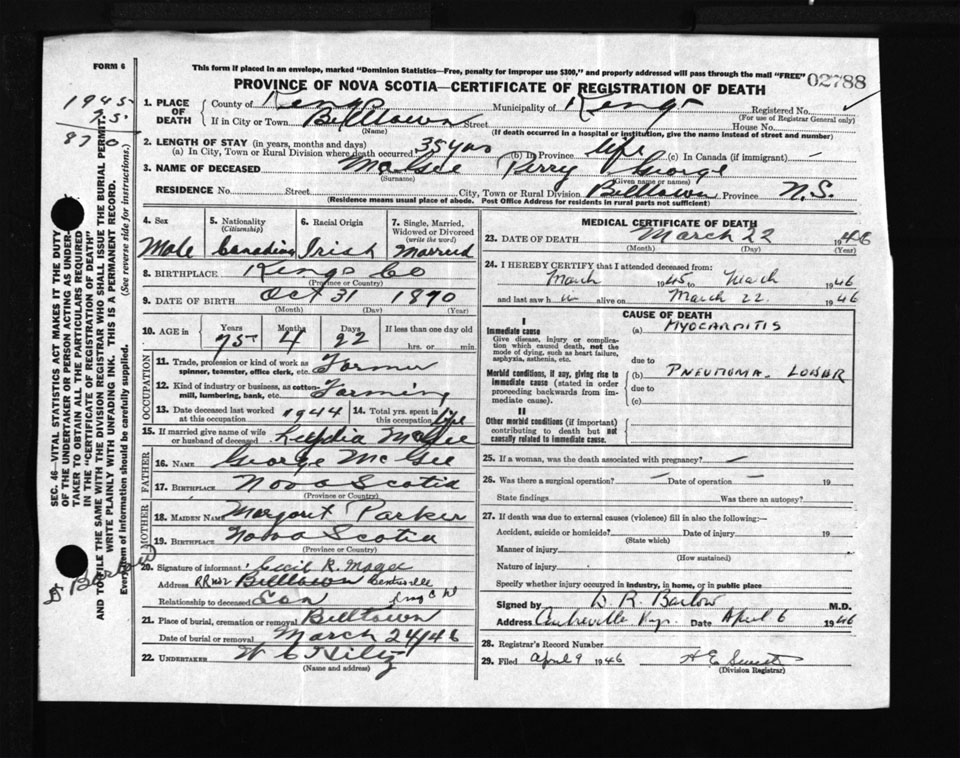 FORM 6
This form if placed in an envelope, marked "Dominion Statistics—Free, penalty for improper use $300," and properly addressed will pass through the mail "FREE"
02788
PROVINCE OF NOVA SCOTIA—CERTIFICATE OF REGISTRATION OF DEATH
1945
75
87 0
1. PLACE OF DEATH
County of Kings Municipality of Kings Registered No.
(For use of Registrar General only)
If in City or Town Billtown Street House No.
(Name) (If death occurred in a hospital or institution, give the name instead of street and number)
2. LENGTH OF STAY (in years, months and days)
(a) In City, Town or Rural Division where death occurred 35 yrs (b) In Province life (c) In Canada (if immigrant) —
3. NAME OF DECEASED McGee Perry George
(Surname) (Given name or names)
RESIDENCE No. Street City, Town or Rural Division Billtown Province N.S.
(Residence means usual place of abode. Post Office Address for residents in rural parts not sufficient)
4. Sex Male
5. Nationality (Citizenship) Canadian
6. Racial Origin Irish
7. Single, Married, Widowed or Divorced (write the word) Married
8. BIRTHPLACE Kings Co
(Province or Country)
9. DATE OF BIRTH Oct 31 1870
(Month) (Day) (Year)
10. AGE in Years 75 Months 4 Days 22 If less than one day old
hrs. or min.
OCCUPATION
11. Trade, profession or kind of work as spinner, teamster, office clerk, etc. Farmer
12. Kind of industry or business, as cotton-mill, lumbering, bank, etc. Farming
13. Date deceased last worked at this occupation 1944 14. Total yrs. spent in this occupation life
15. If married give name of wife or husband of deceased Lydia McGee
FATHER
16. NAME George McGee
17. BIRTHPLACE Nova Scotia
(Province or Country)
MOTHER
18. MAIDEN NAME Margaret Parker
19. BIRTHPLACE Nova Scotia
(Province or Country)
20. Signature of informant Cecil R. Magee
Address RR No 2 Billtown Centreville
Relationship to deceased Son
21. Place of burial, cremation or removal Billtown
Date of burial or removal March 24/46
22. UNDERTAKER W C Hiltz
(Name and address)
MEDICAL CERTIFICATE OF DEATH
23. DATE OF DEATH March 22 1946
(Month) (Day) (Year)
24. I HEREBY CERTIFY that I attended deceased from:
March 1945 to March 1946
and last saw h im alive on March 22. 1946
CAUSE OF DEATH
I
Immediate cause (a) MYOCARDITIS
Give disease, injury or complication which caused death, not the mode of dying, such as heart failure, asphyxia, asthenia, etc.
due to
Morbid conditions, if any, giving rise to immediate cause (stated in order proceeding backwards from immediate cause).
(b) PNEUMONIA. LOBAR
due to
(c)
II
Other morbid conditions (if important) contributing to death but not causally related to immediate cause.
25. If a woman, was the death associated with pregnancy? —
26. Was there a surgical operation? — Date of operation — 19
State findings Was there an autopsy?
27. If death was due to external causes (violence) fill in also the following:—
Accident, suicide or homicide? Date of injury 19
(State which)
Manner of injury
(How sustained)
Nature of injury
Specify whether injury occurred in industry, in home, or in public place
Signed by D. R. Barlow M.D.
Address Centreville Date April 6 1946
28. Registrar's Record Number
29. Filed April 9 1946
(Division Registrar)
SEC. 46—VITAL STATISTICS ACT MAKES IT THE DUTY
OF THE UNDERTAKER OR PERSON ACTING AS UNDER-
TAKER TO OBTAIN ALL THE PARTICULARS REQUIRED
IN THE "CERTIFICATE OF REGISTRATION OF DEATH"
AND TO FILE THE SAME WITH THE DIVISION REGISTRAR WHO SHALL ISSUE THE BURIAL PERMIT.
WRITE PLAINLY WITH UNFADING INK. THIS IS A PERMANENT RECORD.
Every item of information should be carefully supplied. (See reverse side for instructions.)
Dr Barlow